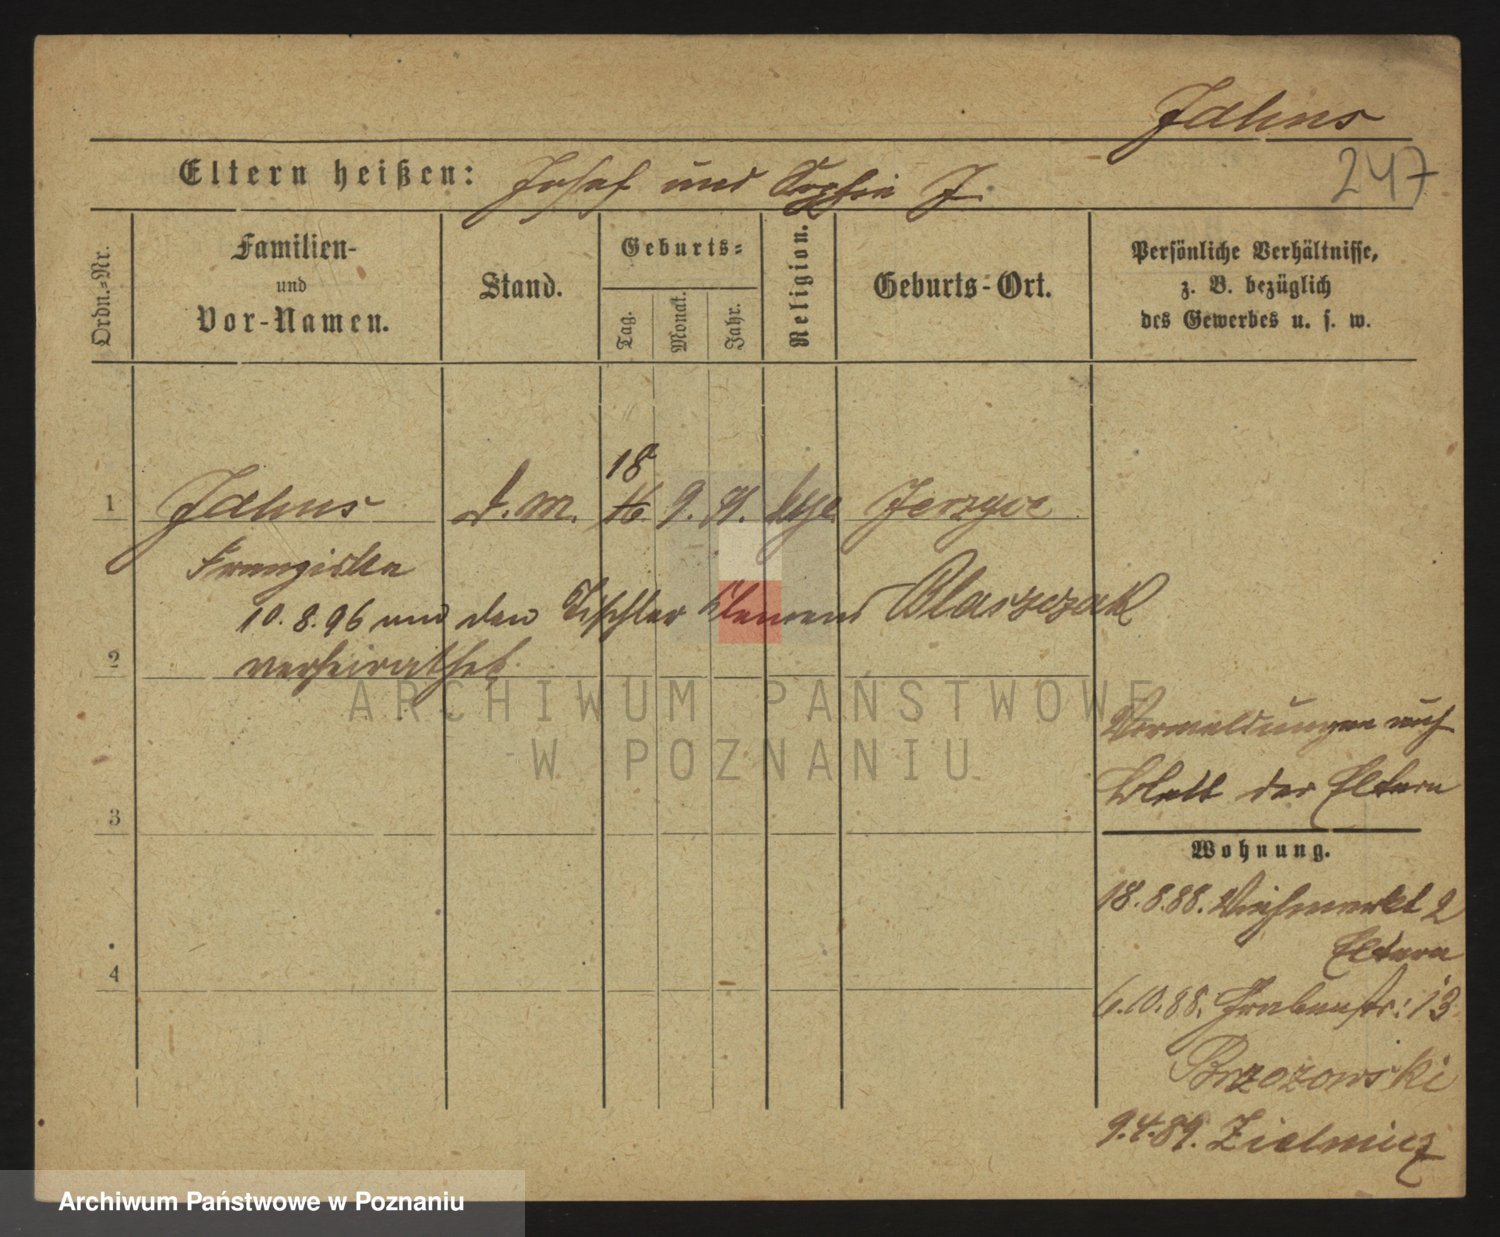 Jahns
247
Eltern heißen: Josef und Sophie J.
Ordn.-Nr.
Familien-
und
Vor-Namen.
Stand.
Geburts=
Tag.
Monat.
Jahr.
Religion.
Geburts-Ort.
Persönliche Verhältnisse,
z. B. bezüglich
des Gewerbes u. s. w.
18
1 Jahns d. M. 16 9. kth Jerzyce
Franziska
10.8.96 und den Tischler Klemens Blaszczak
verheirathet
2
ARCHIWUM PAŃSTWOWE
W POZNANIU
Vormeldungen auf
Blatt der Eltern
3
Wohnung.
18.8.88. Viehmarkt 2
Eltern
4
6.10.88. Grabenstr: 13
Brzozowski
9.4.89. Zielmicz
Archiwum Państwowe w Poznaniu